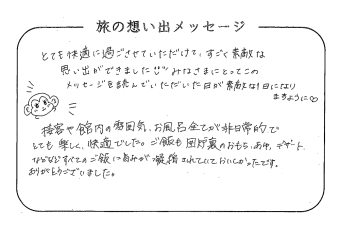 旅の想い出メッセージ
とても快適に過ごさせていただけて、すごく素敵な
思い出ができました!!みなさまにとってこの
メッセージを読んでいただいた日が素敵な1日になり
ますように♡
接客や館内の雰囲気、お風呂全てが非日常的で
とても楽しく、快適でした。ご飯も囲炉裏のおもち、あゆ、デザート
などなどすべてのご飯に旨みが凝縮されていておいしかったです。
ありがとうございました。